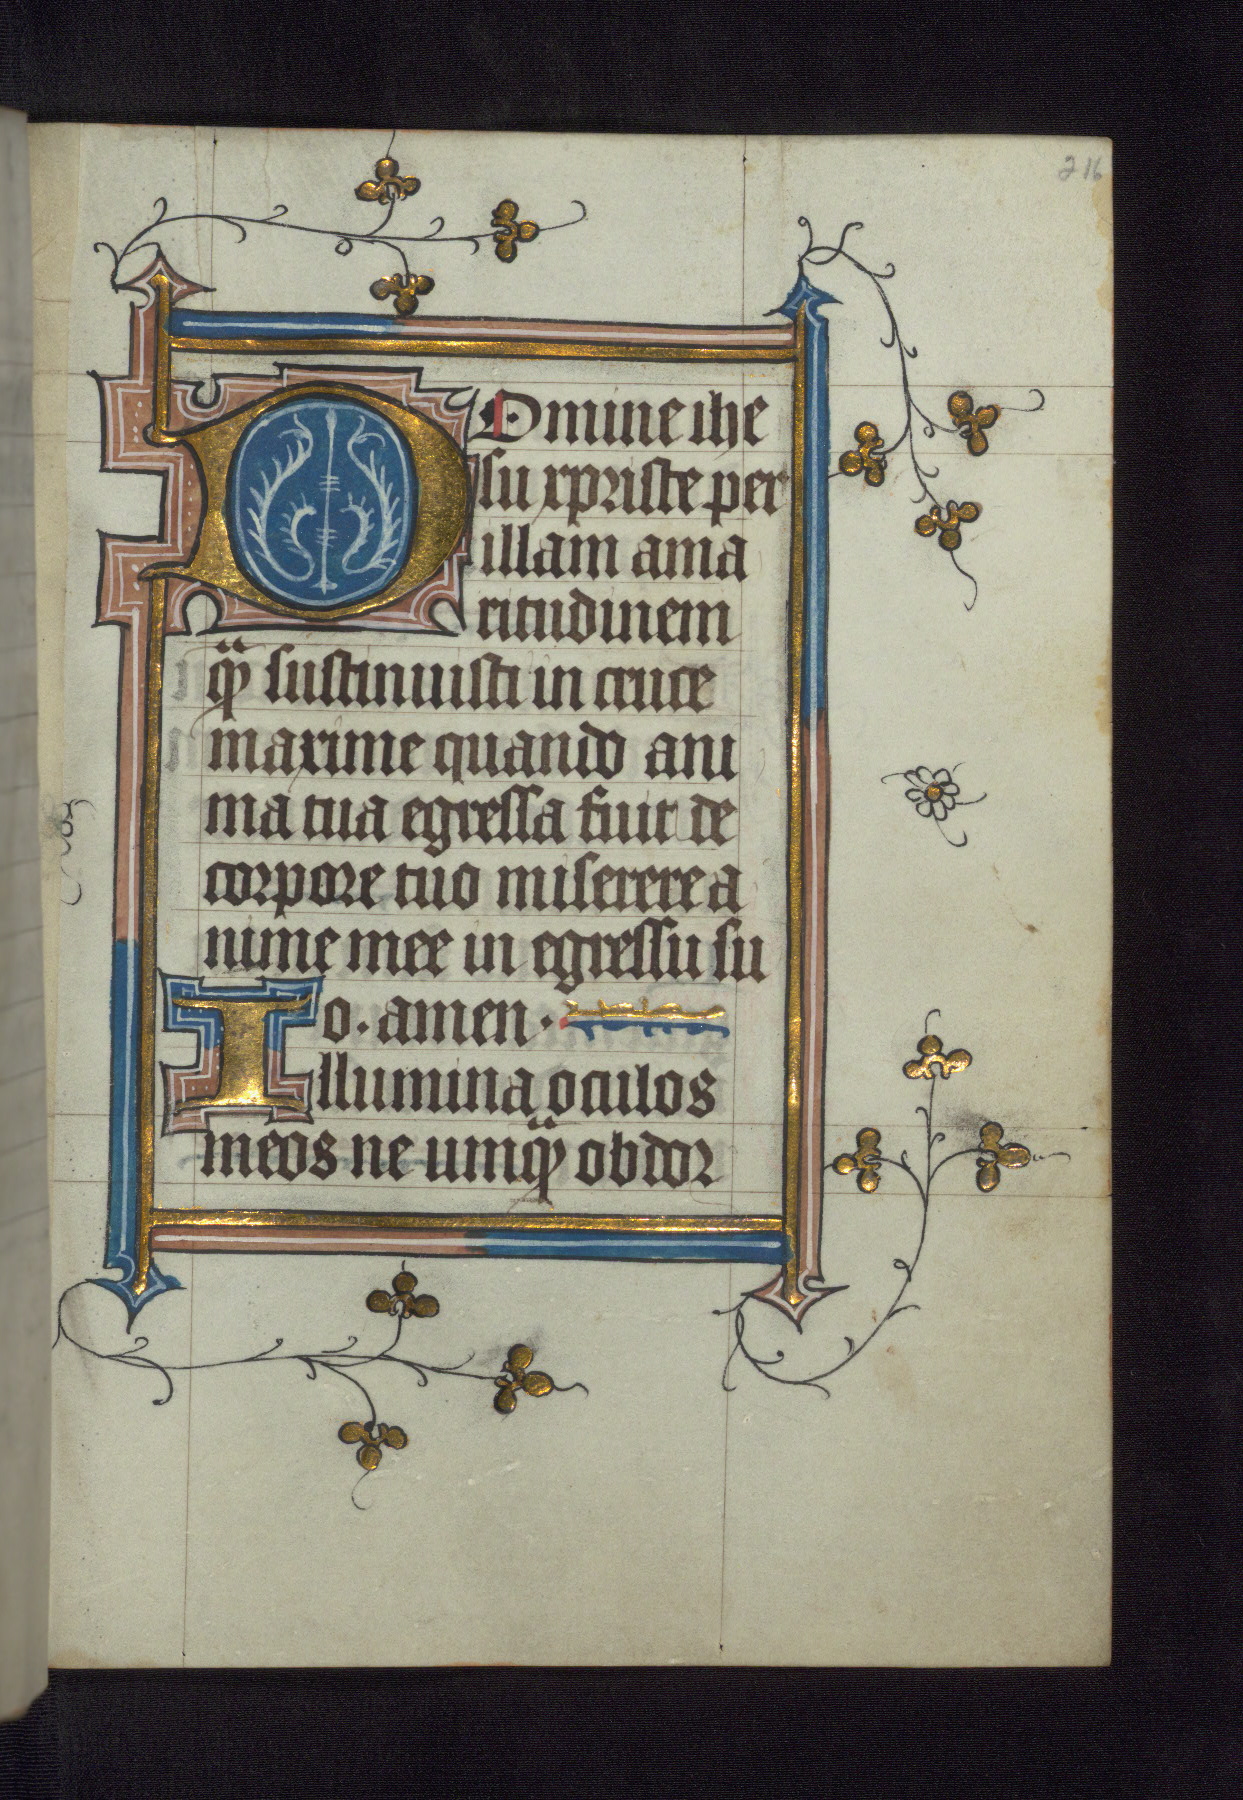 216
DOmine ihe
su xpriste per
illam ama
ritudinem
q̈ sustinuisti in cruce
maxime quando ani
ma tua egressa fuit de
corpore tuo miserere a
nime mee in egressu su
o · amen ·
Illumina oculos
meos ne umq̈ obdor